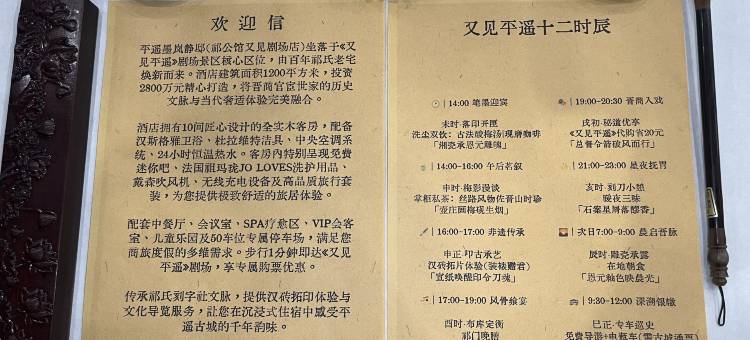 欢迎信
平遥墨岚静邸(祁公馆又见剧场店)坐落于《又
见平遥》剧场景区核心区位,由百年祁氏老宅
焕新而来。酒店建筑面积1200平方米,投资
2800万元精心打造,将晋商官宦世家的历史
文脉与当代奢适体验完美融合。
酒店拥有10间匠心设计的全实木客房,配备
汉斯格雅卫浴、杜拉维特洁具、中央空调系
统、24小时恒温热水。客房内特别呈现免费
迷你吧、法国祖玛珑JO LOVES洗护用品、
戴森吹风机、无线充电设备及高品质旅行套
装,为您提供极致舒适的旅居体验。
配套中餐厅、会议室、SPA疗愈区、VIP会客
室、儿童乐园及50车位专属停车场,满足您
商旅度假的多维需求。步行1分钟即达《又见
平遥》剧场,享专属购票优惠。
传承祁氏刻字社文脉,提供汉砖拓印体验与
文化导览服务,让您在沉浸式住宿中感受平
遥古城的千年韵味。
又见平遥十二时辰
14:00 笔墨迎宾
未时·落印开匣
洗尘双饮:古法酸梅汤|现磨咖啡
「湘瓷承恩元雕魂」
14:00-16:00 午后茗叙
申时·梅影漫谈
掌柜私茶:丝路风物佐晋山时珍
「壶庄画梅砚生烟」
16:00-17:00 非遗传承
申正·叩古承艺
汉砖拓片体验(装裱赠君)
「宣纸唤醒印令刀魂」
17:00-19:00 风骨飨宴
酉时·布庠定衡
祁门晚膳
19:00-20:30 晋商入戏
戌初·秘道优享
《又见平遥》代购省20元
「总督令箭破风而行」
21:00-23:00 星夜抚胃
亥时·刻刀小憩
暖夜三味
「石案星屑落醪香」
次日7:00-9:00 晨启晋脉
辰时·雕瓷承露
在地朝食
「恩元釉色映晨光」
9:30-12:00 深溯银辙
巳正·专车巡史
免费导游+电瓶车(需古城通票)